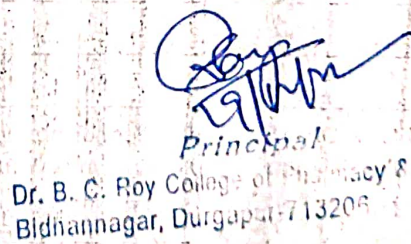 Principal
Dr. B. C. Roy College of Pharmacy &
Bidhannagar, Durgapur-713206